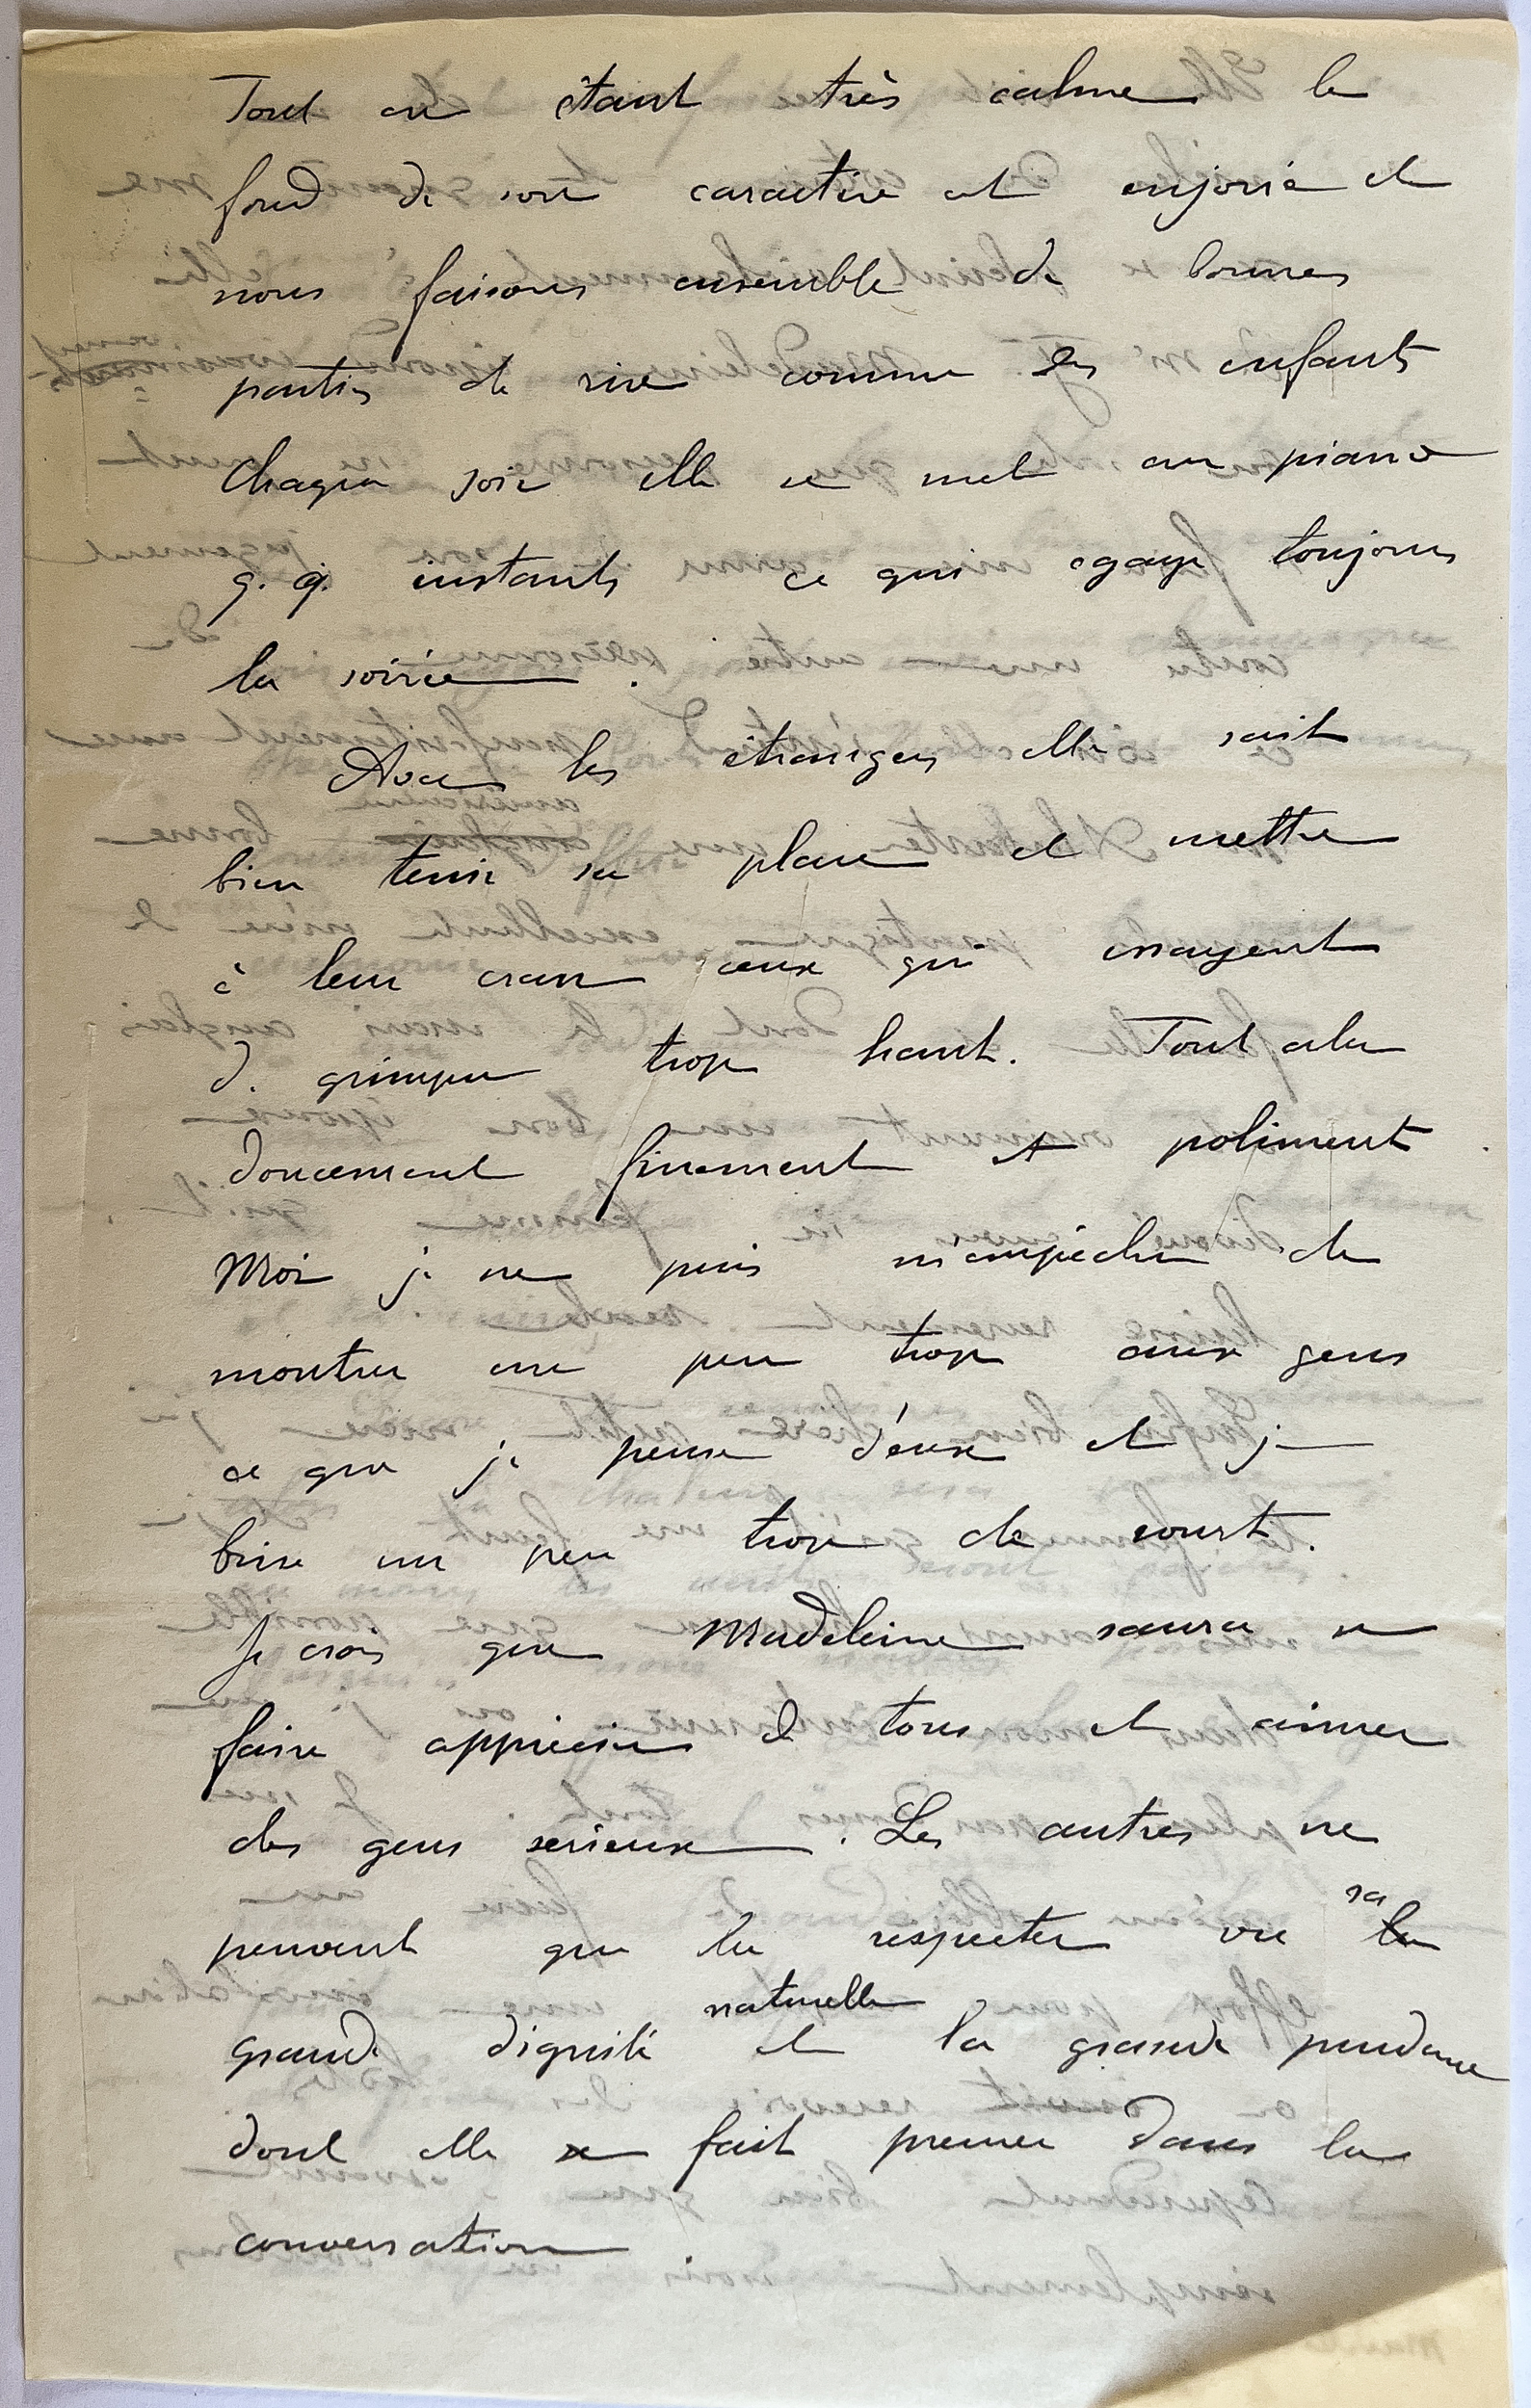 Tout en étant très calme le
fond de son caractère est enjoué et
nous faisons ensemble de bonnes
parties de rire comme des enfants
Chaque soir elle se met au piano
q. q. instants ce qui egaye toujours
la soirée.
Avec les étrangers elle sait
bien tenir sa place et mettre
à leur cran ceux qui essayent
d. grimper trop haut. Tout cela
doucement finement et poliment
Moi je ne puis m'empêcher de
montrer un peu trop aux gens
ce que je pense d'eux et je
brise un peu trop de court.
Je crois que Madeleine saura se
faire apprécier de tous et aimer
des gens serieux. Les autres ne
peuvent que la respecter vu sa
grande dignité naturelle et la grande prudence
dont elle fait preuve dans la
conversation